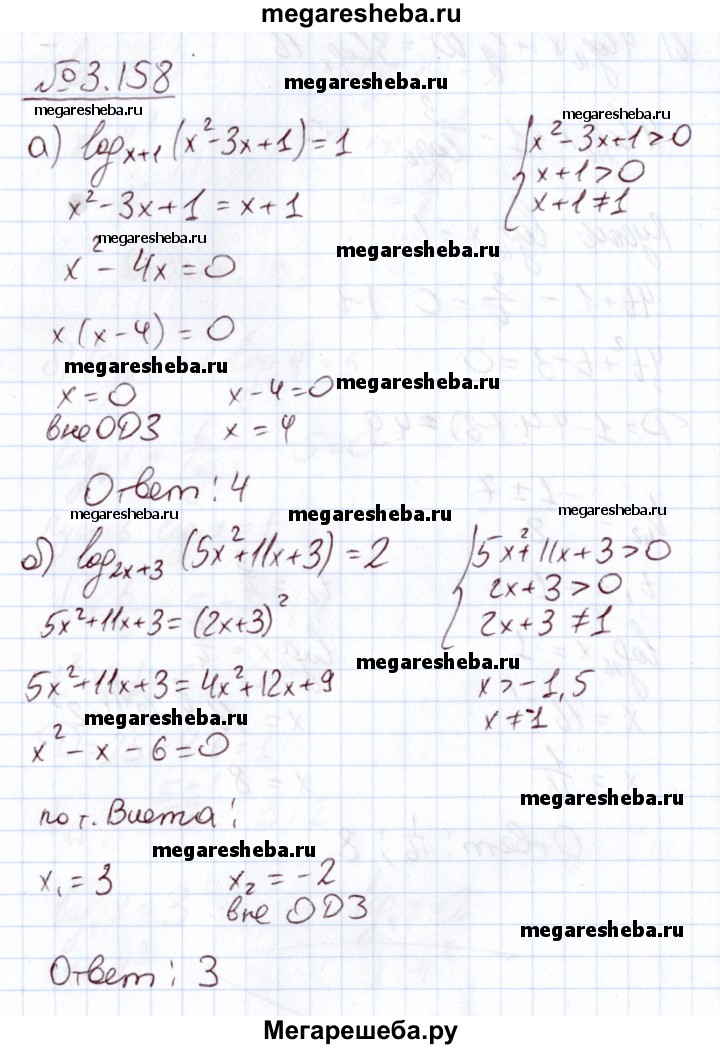 megaresheba.ru
№3.158
megaresheba.ru
megaresheba.ru
megaresheba.ru
а) log_{x+1} (x²-3x+1)=1
{ x²-3x+1>0
x+1>0
x+1≠1
x²-3x+1=x+1
megaresheba.ru
megaresheba.ru
x²-4x=0
x(x-4)=0
megaresheba.ru
megaresheba.ru
x=0 x-4=0
вне ОДЗ x=4
Ответ: 4
megaresheba.ru
megaresheba.ru
megaresheba.ru
б) log_{2x+3} (5x²+11x+3)=2
{ 5x²+11x+3>0
2x+3>0
2x+3≠1
5x²+11x+3=(2x+3)²
megaresheba.ru
5x²+11x+3=4x²+12x+9
x>-1,5
x≠-1
megaresheba.ru
x²-x-6=0
megaresheba.ru
по т. Виета:
megaresheba.ru
x₁=3 x₂=-2
вне ОДЗ
megaresheba.ru
Ответ: 3
Мегарешеба.ру